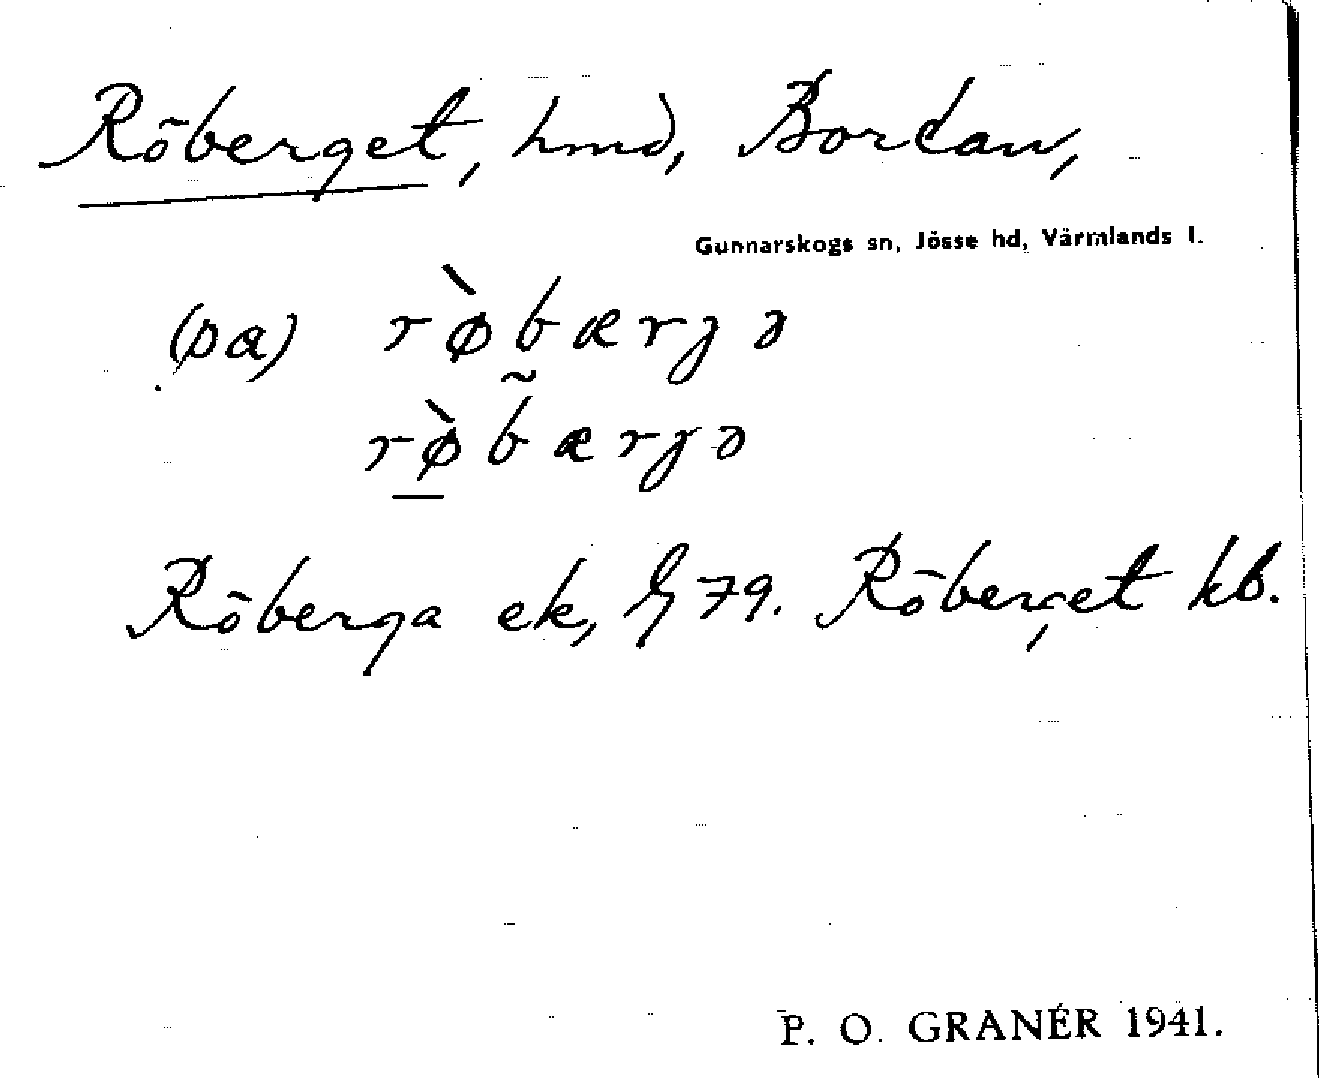 Röberget, hmd, Bordan,
Gunnarskogs sn, Jösse hd, Värmlands l.
(pa) rø̀bærgə
rø̀bærgə
Röberga ek, G 79. Röberget kb.
P. O. GRANÉR 1941.